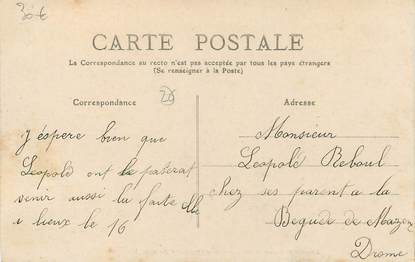 30€
CARTE POSTALE
La Correspondance au recto n'est pas acceptée par tous les pays étrangers
(Se renseigner à la Poste)
Correspondance
26
Adresse
J'éspere bien que
Leopold ont le
venir aussi la faite elle
a lieux le 16
Monsieur
Leopold Reboul
chez ses parent a la
Begude de Mazen
Drome